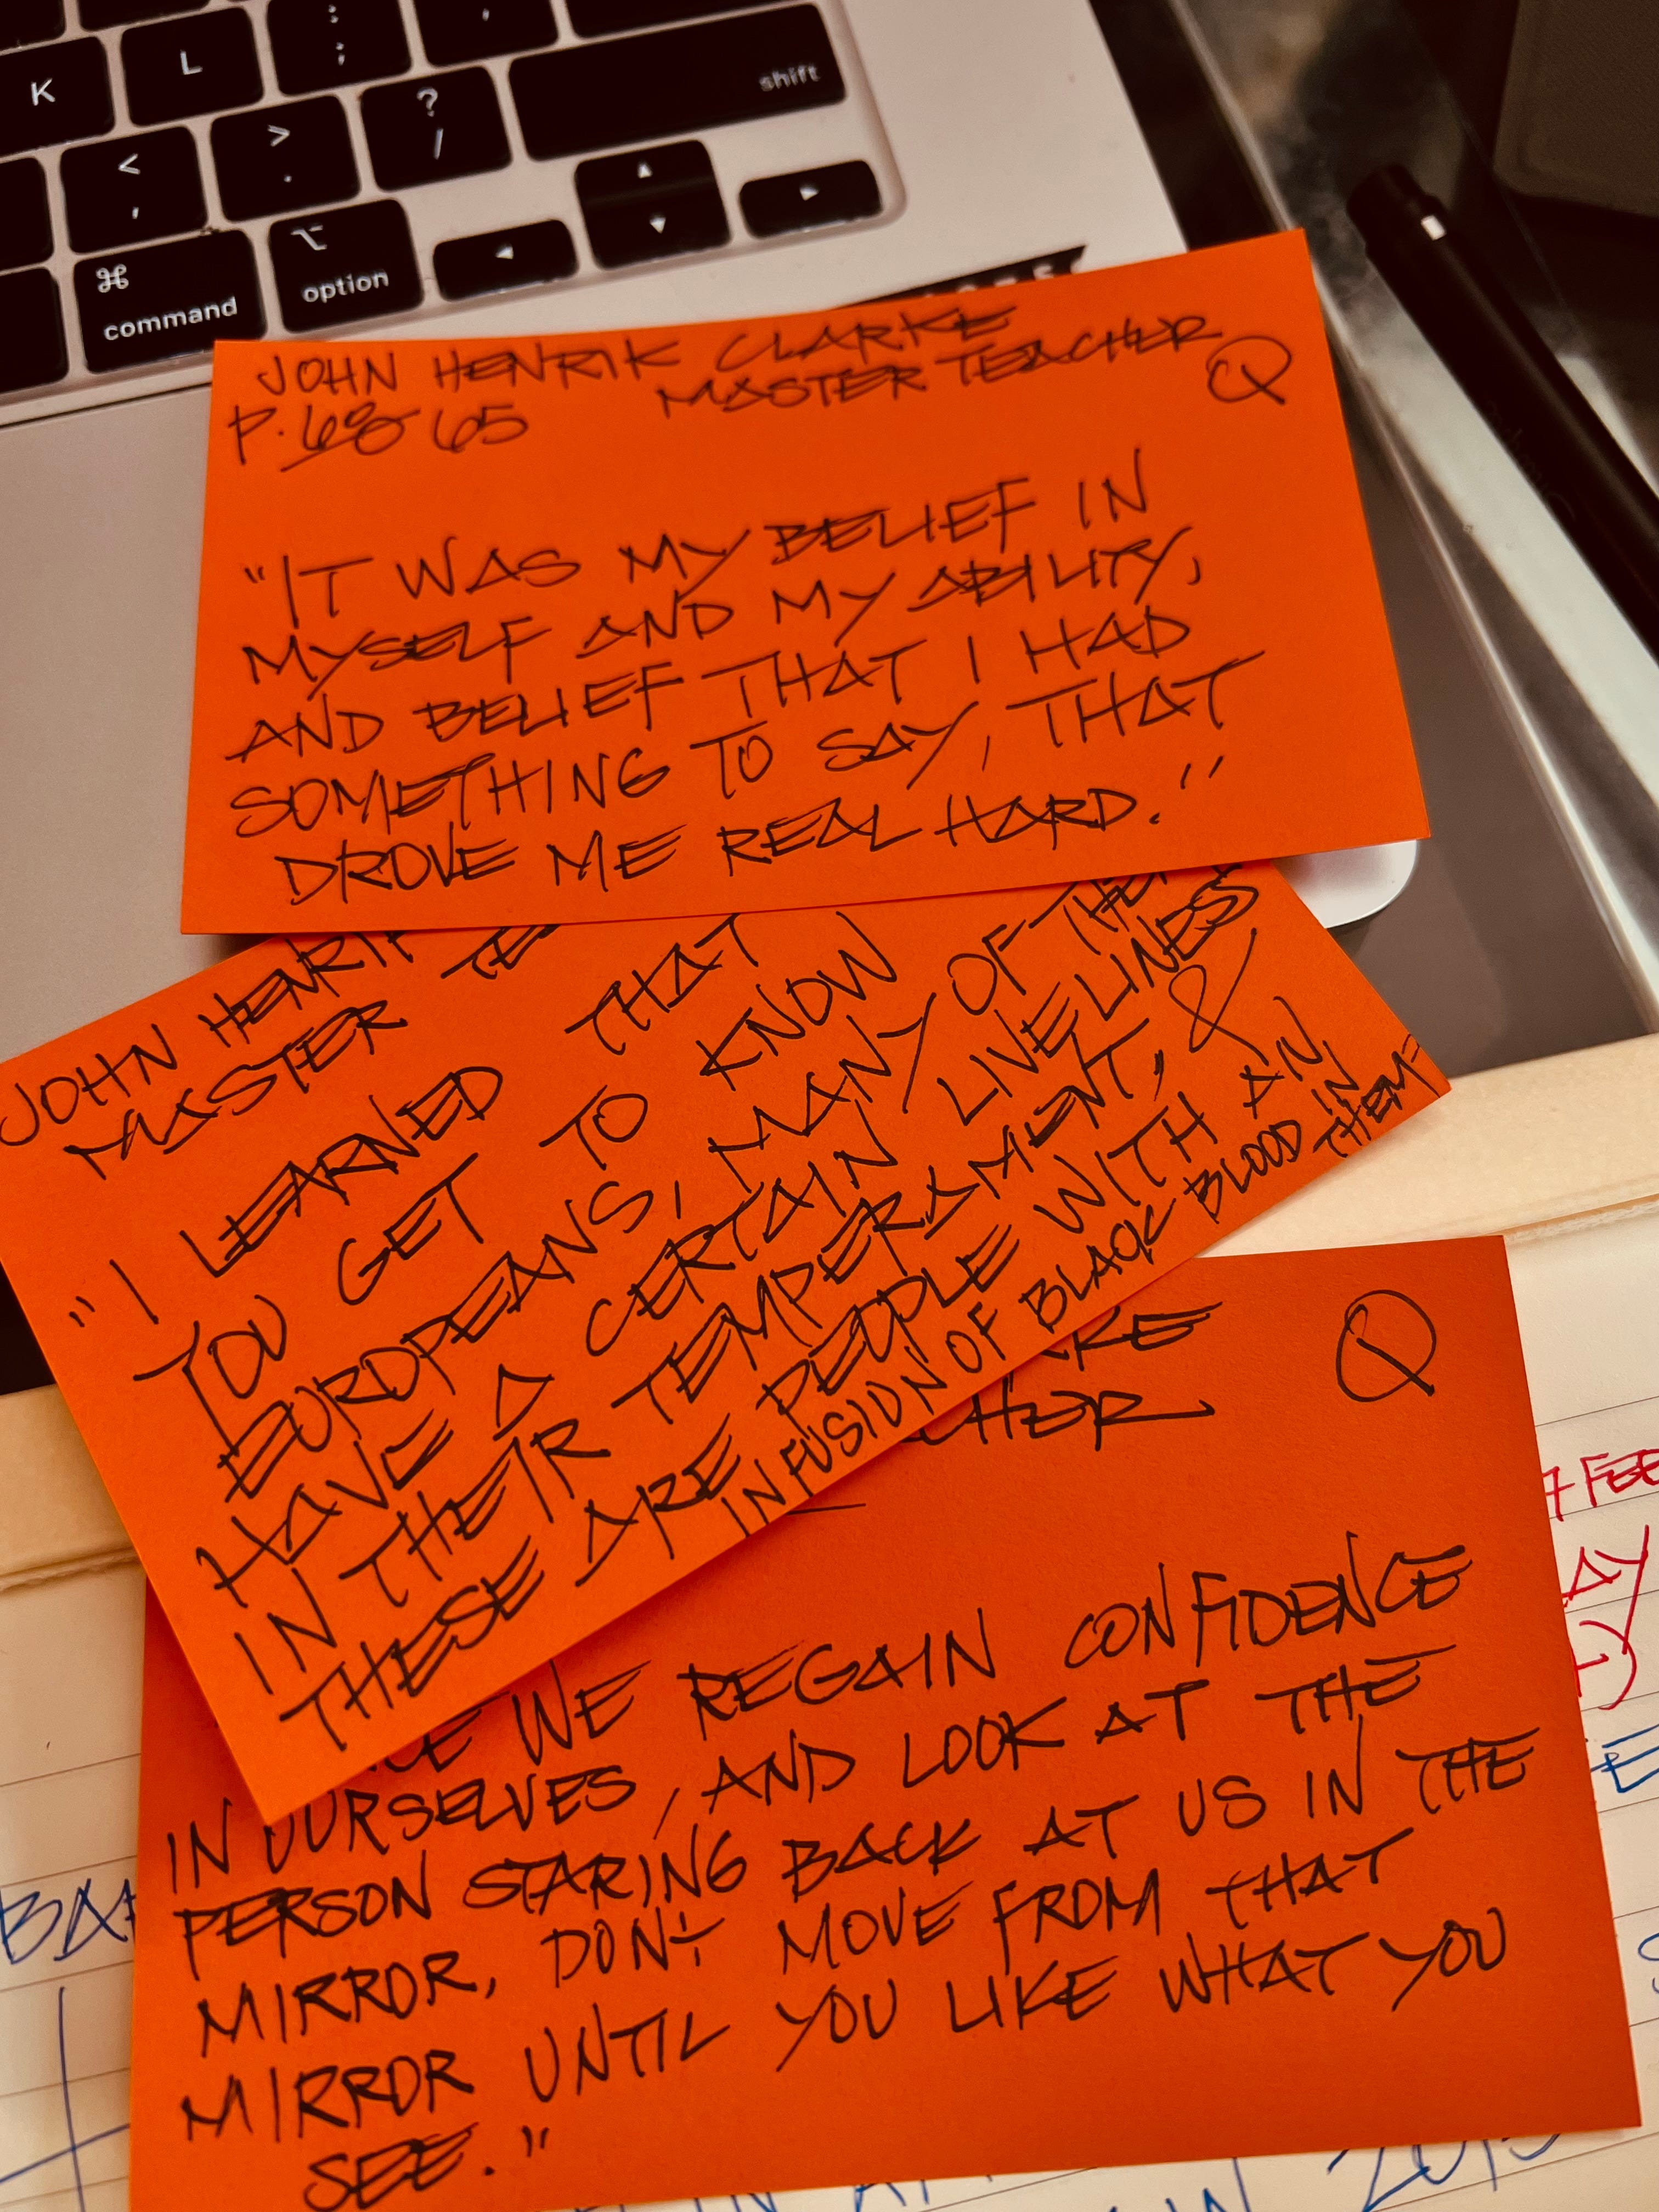 K
L
:
;
shift
<
,
>
.
?
/
⌘
command
⌥
option
JOHN HENRIK CLARKE
P. 65 MASTER TEACHER
Q
"IT WAS MY BELIEF IN
MYSELF AND MY ABILITY,
AND BELIEF THAT I HAD
SOMETHING TO SAY, THAT
DROVE ME REAL HARD."
JOHN HENRIK
MASTER
"I LEARNED THAT
YOU GET TO KNOW
EUROPEANS, MANY OF THE
HAVE A CERTAIN LIVELINESS
IN THEIR TEMPERAMENT, &
THESE ARE PEOPLE WITH AN
INFUSION OF BLACK BLOOD IN
THEM
Q
WE REGAIN CONFIDENCE
IN OURSELVES, AND LOOK AT THE
PERSON STARING BACK AT US IN THE
MIRROR, DON'T MOVE FROM THAT
MIRROR UNTIL YOU LIKE WHAT YOU
SEE."